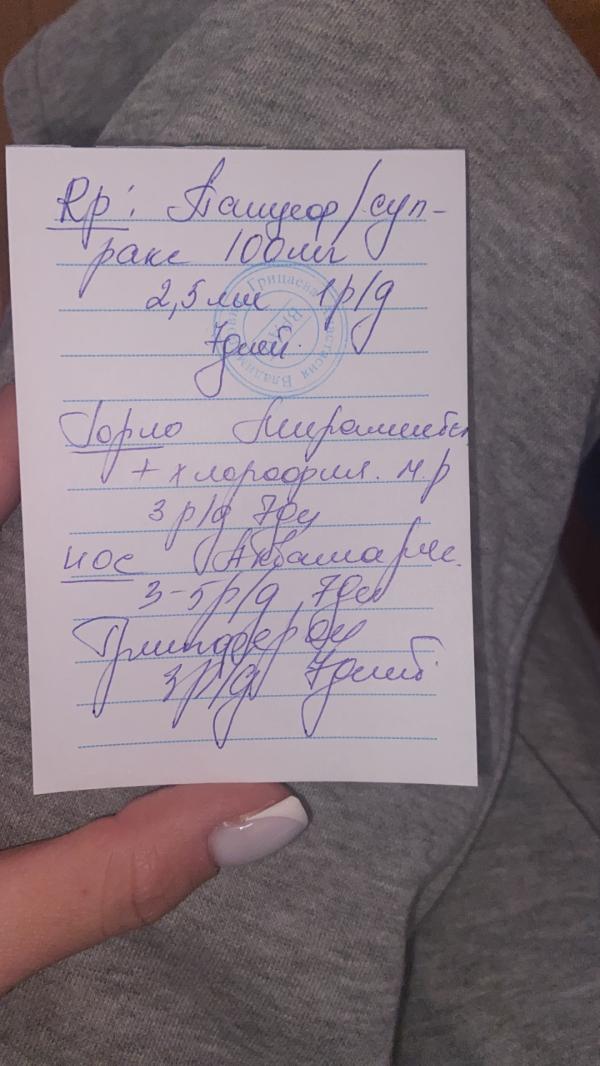 Rp: Панцеф/суп-
ракс 100мг
2,5 мл 1р/д
7 дней.
Горло Мирамисти
+ хлорофил. м.р
3 р/д 7дн
нос Аквамарис.
3-5р/д 7дн
Гриппферон
3р/д 7дней
Грицаева
Владим